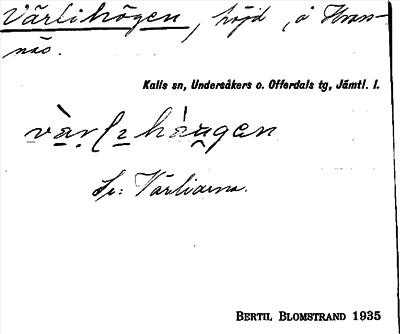 Värlihögen, höjd, å Hran-
näs.
Kalls sn, Undersåkers o. Offerdals tg, Jämtl. l.
Se: Värliarna.
BERTIL BLOMSTRAND 1935